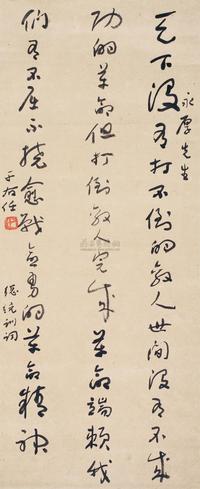 永厚先生
天下没有打不倒的敌人世间没有不成
功的革命但打倒敌人完成革命端赖我
们有不屈不挠愈战愈勇的革命精神
总统训词
于右任